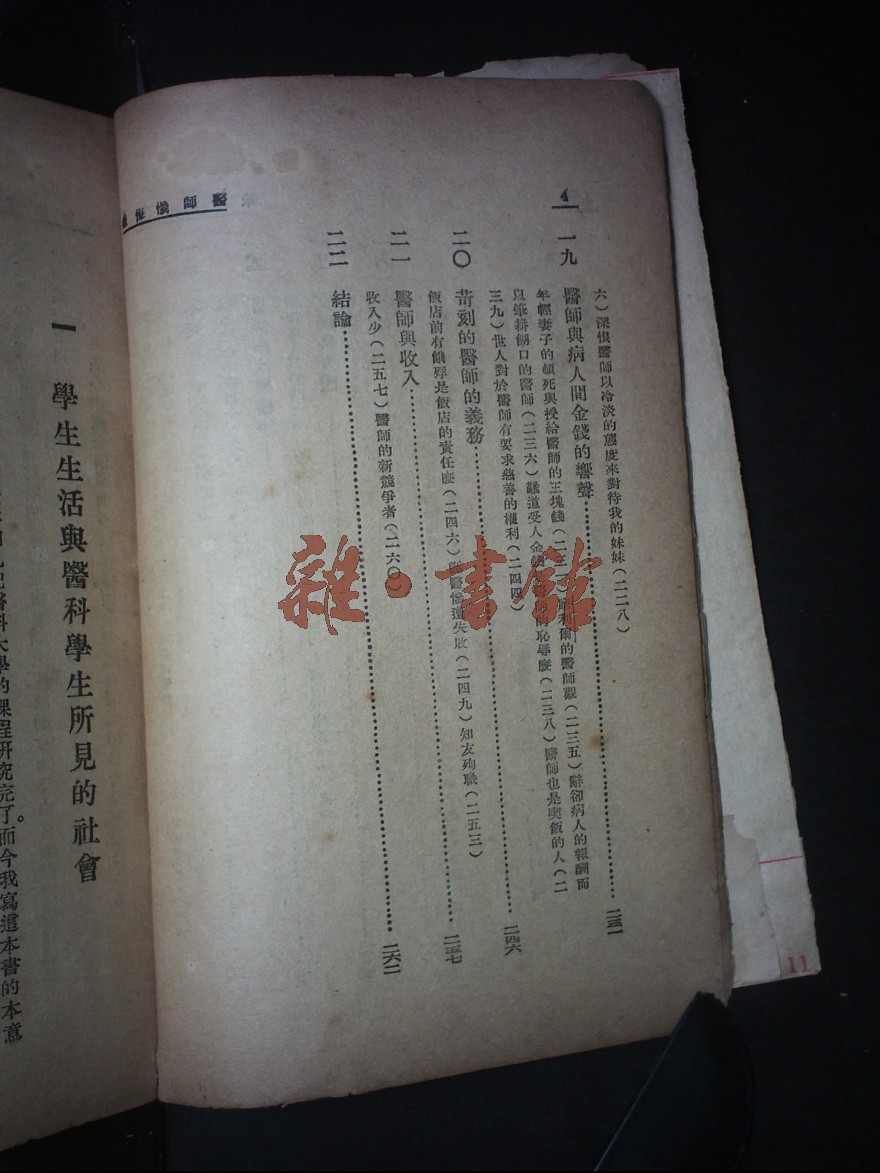 4
醫師懺悔
六)深恨醫師以冷淡的態度來對待我的妹妹(二二八)
一九 醫師與病人間金錢的響聲 二三一
年輕妻子的頓死與授給醫師的三塊錢(二三 利爾的醫師觀(二三五)辭卻病人的報酬而
以筆耕餬口的醫師(二三六)難道受人金錢 的恥辱麼(二三八)醫師也是喫飯的人(二
三九)世人對於醫師有要求慈善的權利(二四四)
二〇 苛刻的醫師的義務 二四六
飯店前有餓殍是飯店的責任麼(二四六) 醫 遭失敗(二四九)知友殉職(二五三)
二一 醫師與收入 二五七
收入少(二五七)醫師的新競爭者(二六〇)
二二 結論 二六二
一 學生生活與醫科學生所見的社會
醫科大學的課程研究完了。而今我寫這本書的本意
雜·書館
11